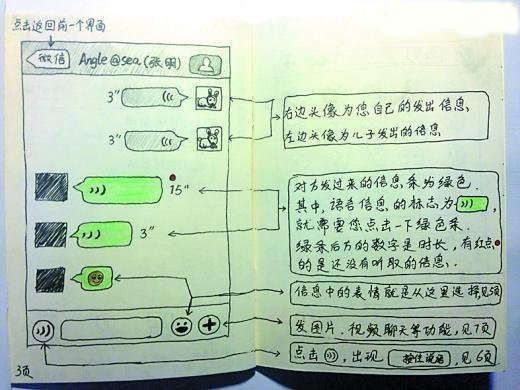 点击返回前一个界面
微信 Angle@sea(张明)
3"
3"
右边头像为您自己的发出信息,
左边头像为儿子发出的信息
15"
3"
对方发过来的信息条为绿色.
其中,语音信息的标志为
就需要您点击一下绿色条.
绿条后方的数字是时长,有红点
的是还没有听取的信息.
信息中的表情就是从这里选择见5页
发图片.视频聊天等功能,见7页
点击 ,出现 按住说话 ,见6页
3页